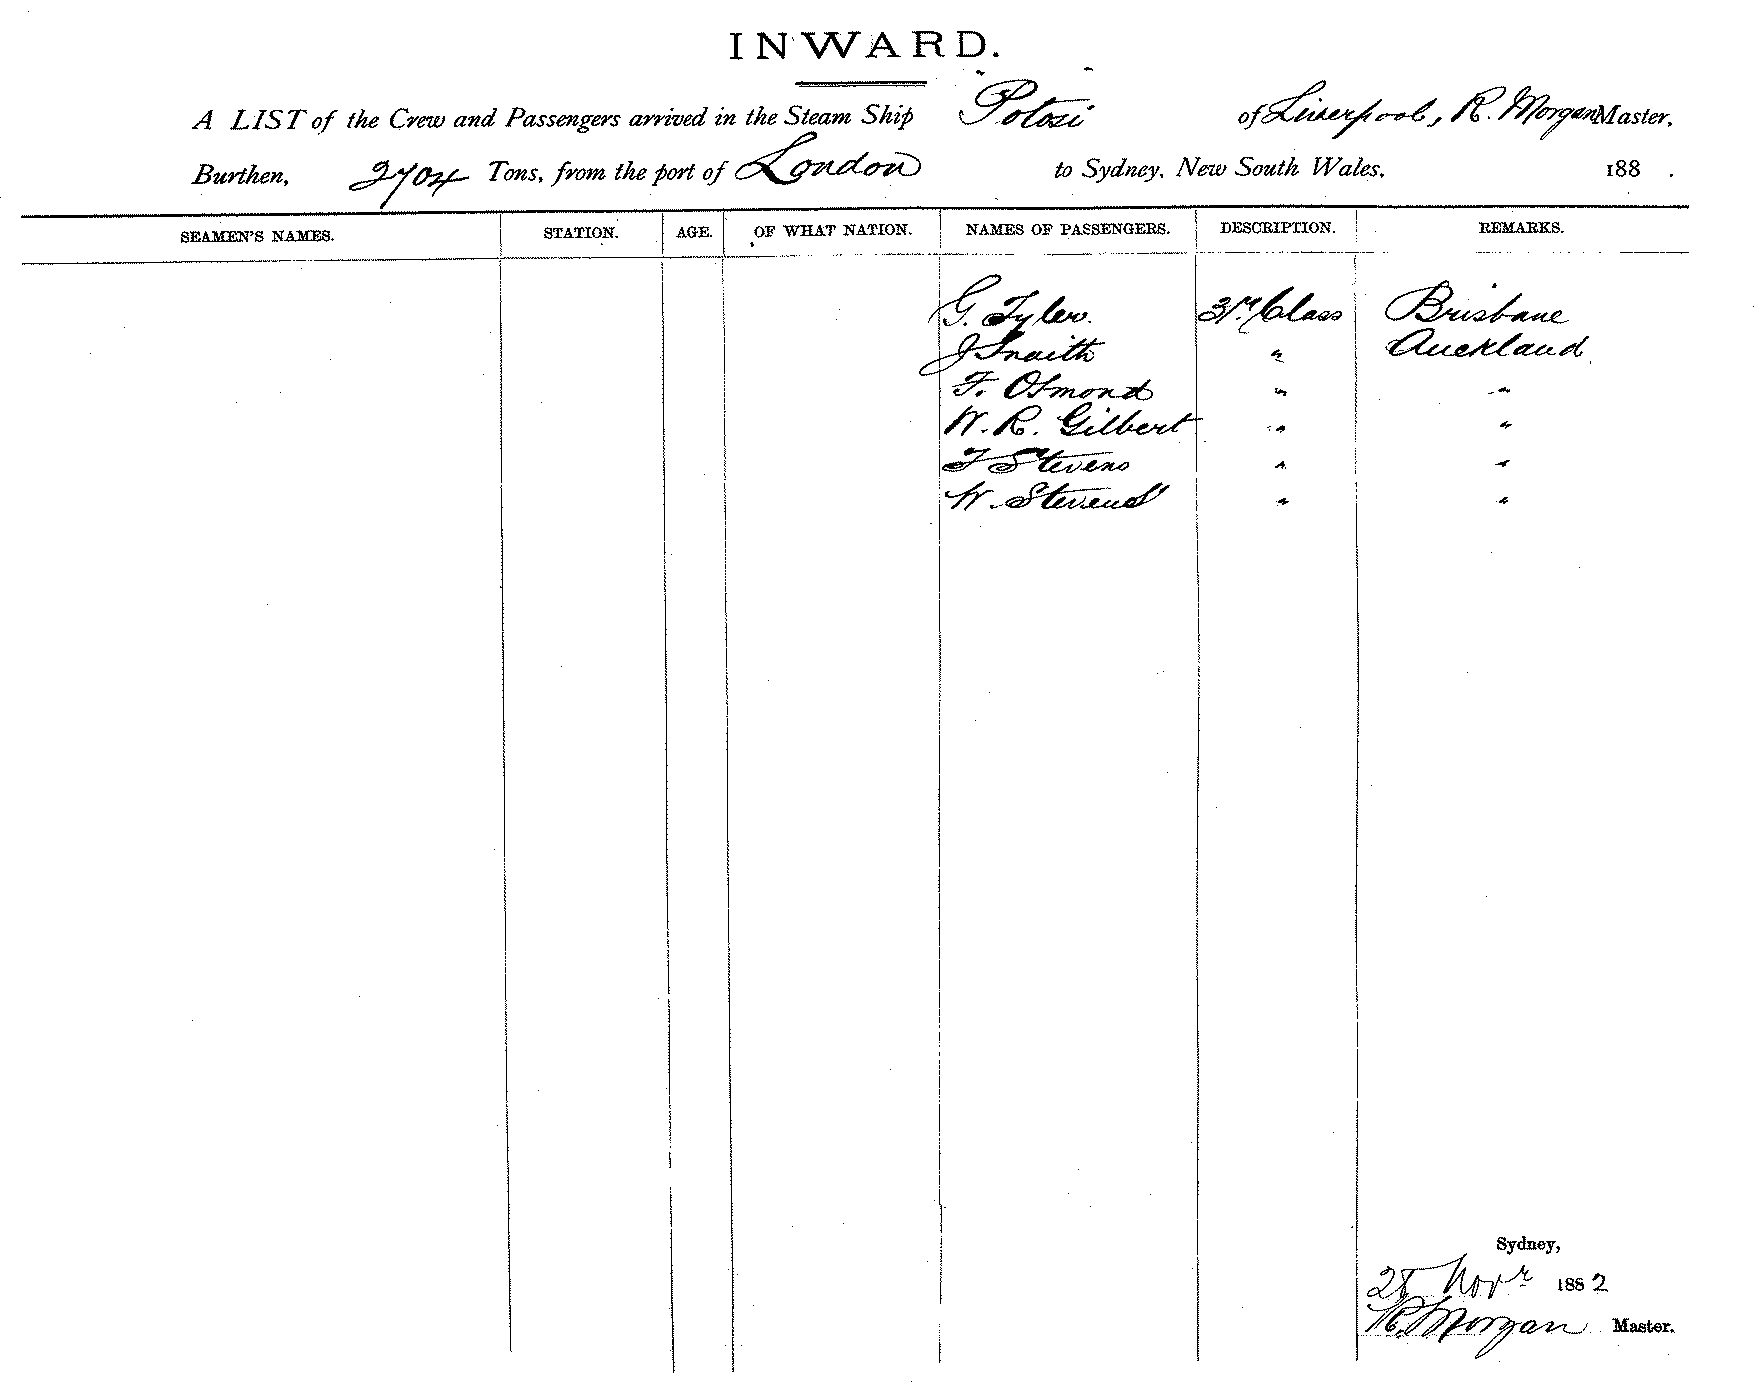 INWARD.
A LIST of the Crew and Passengers arrived in the Steam Ship "Potosi" of Liverpool, R. Morgan Master,
Burthen, 2704 Tons, from the port of London to Sydney, New South Wales, 188 .
SEAMEN'S NAMES. STATION. AGE. OF WHAT NATION. NAMES OF PASSENGERS. DESCRIPTION. REMARKS.
G. Tyler. 3rd Class Brisbane
J Snaith " Auckland
F. Osmond " "
W. R. Gilbert " "
F Stevens " "
W. Stevens " "
Sydney,
Novr 1882
R. Morgan Master.